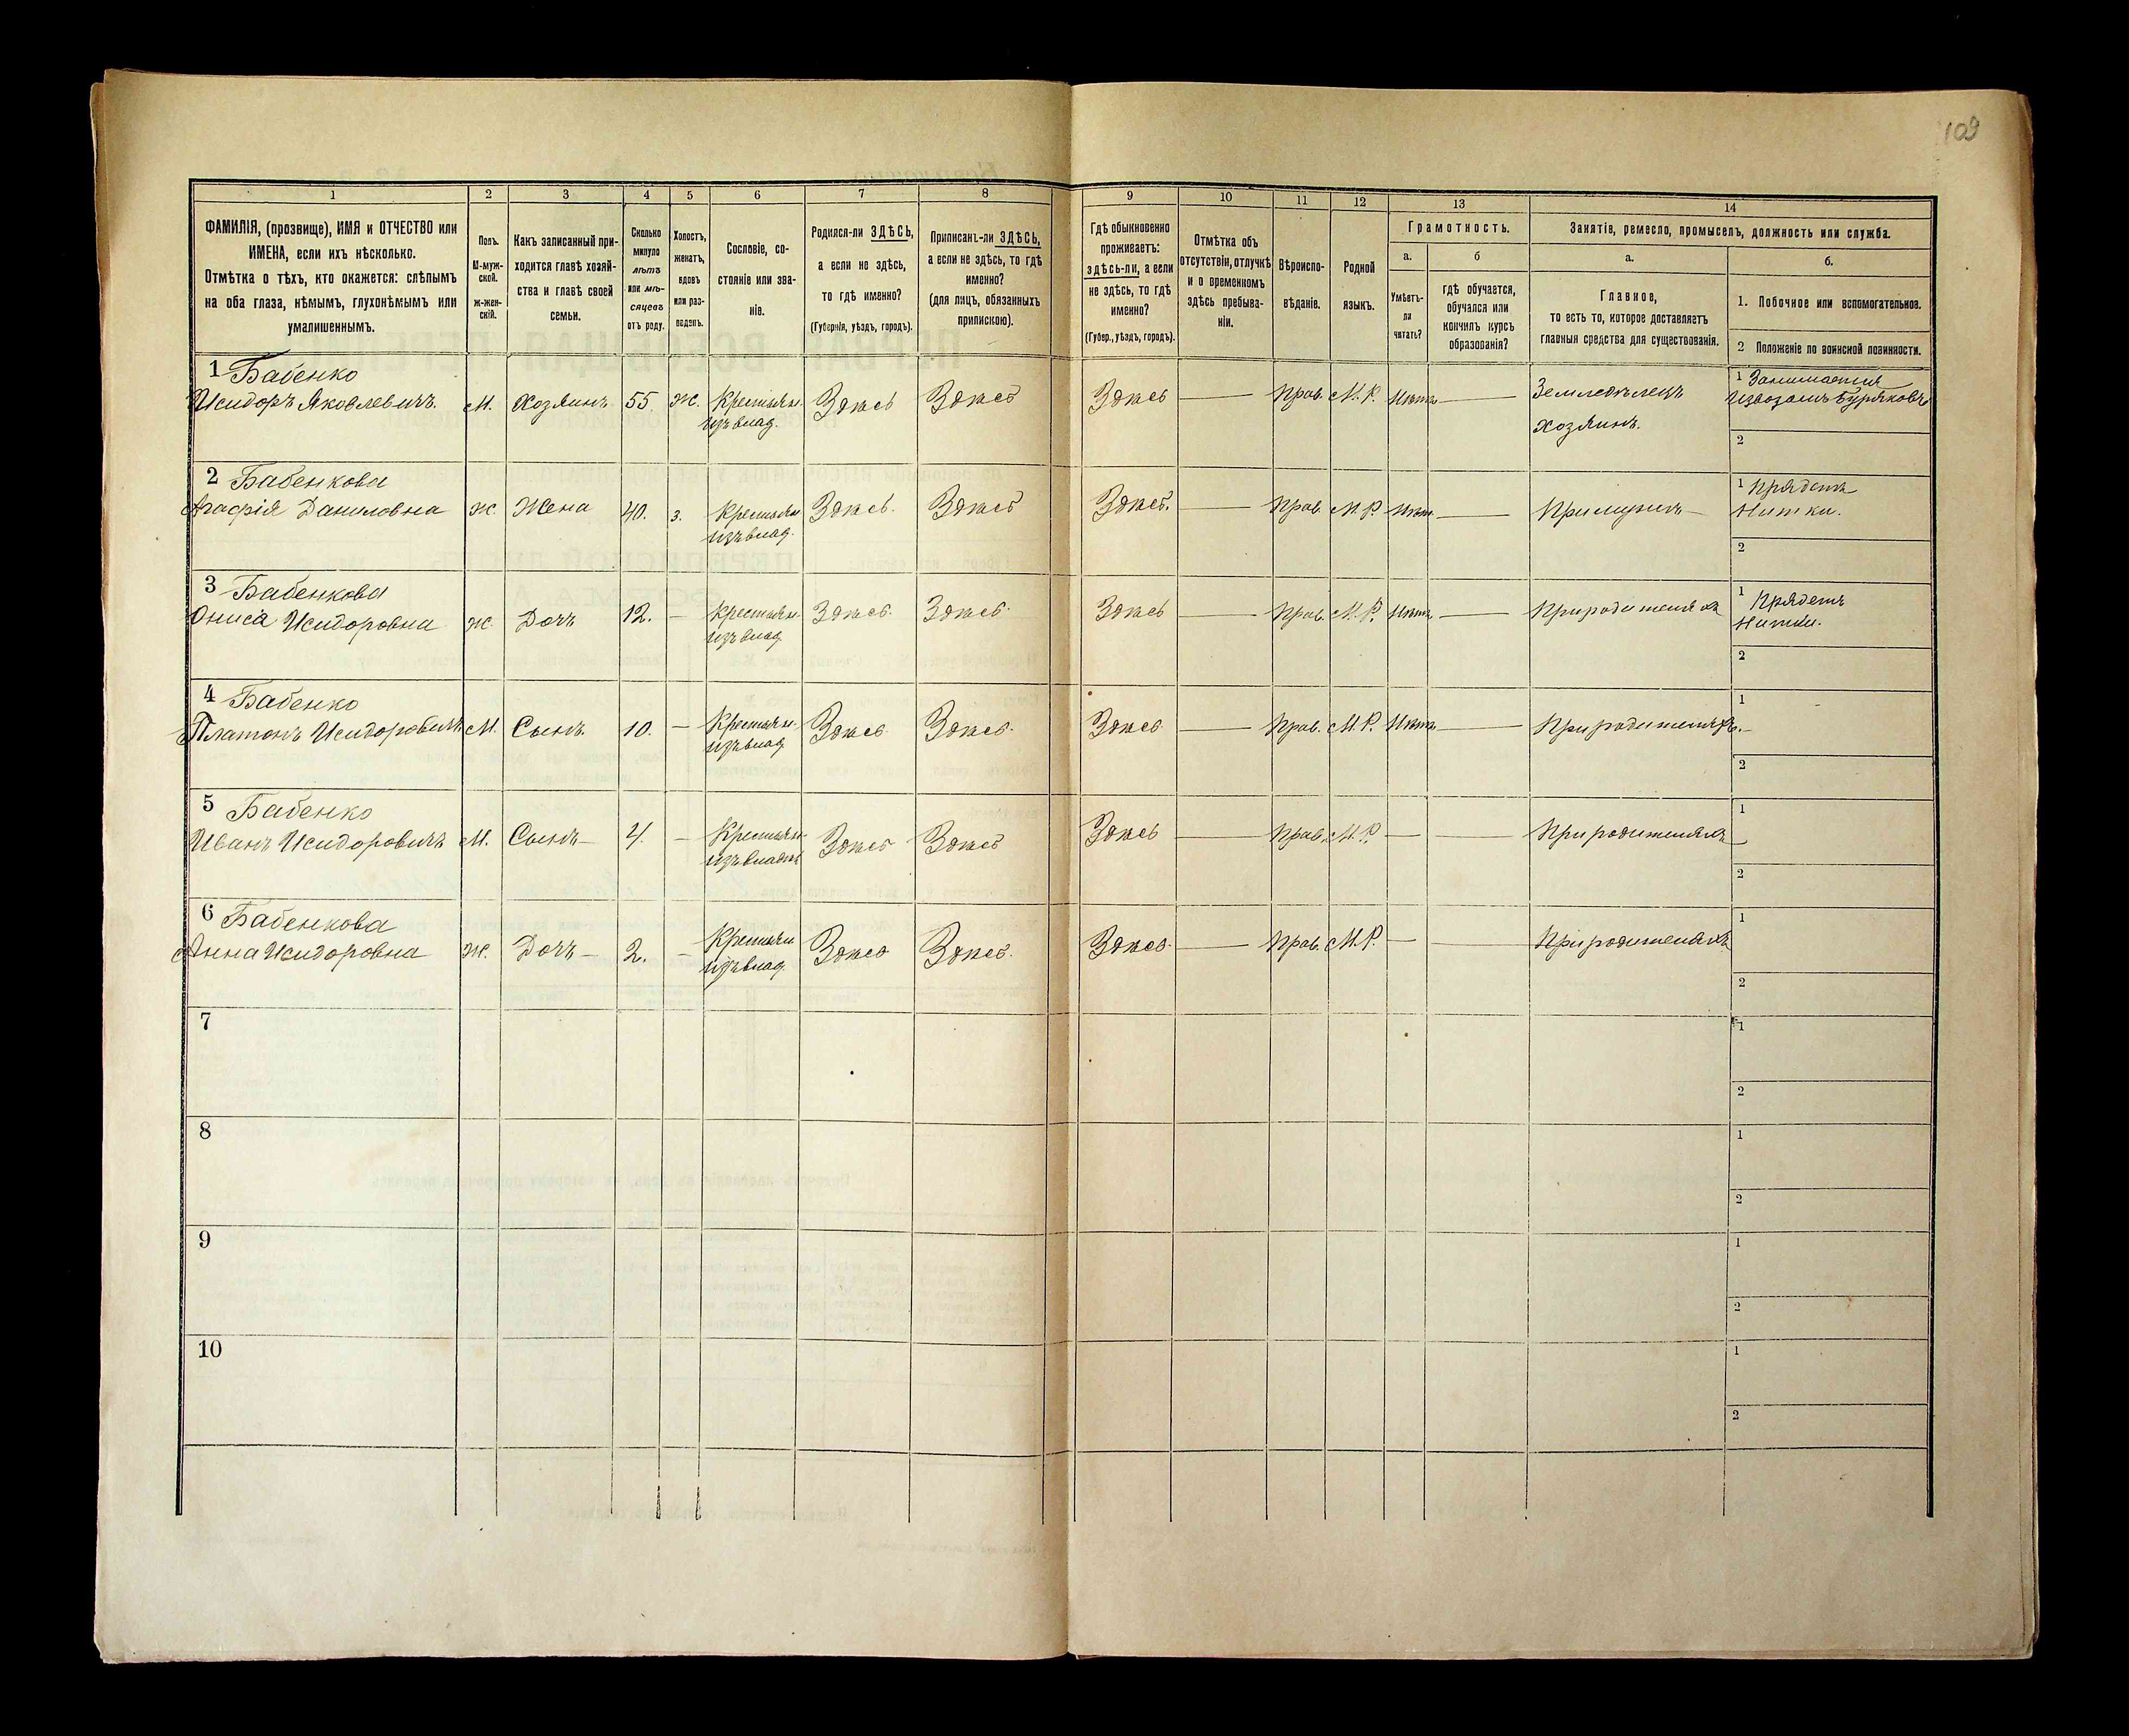 109
1 2 3 4 5 6 7 8 9 10 11 12 13 14
ФАМИЛІЯ, (прозвище), ИМЯ и ОТЧЕСТВО или
ИМЕНА, если ихъ нѣсколько.
Отмѣтка о тѣхъ, кто окажется: слѣпымъ
на оба глаза, нѣмымъ, глухонѣмымъ или
умалишеннымъ.
Полъ.
М-муж-
ской.
Ж-жен-
скій.
Какъ записанный при-
ходится главѣ хозяй-
ства и главѣ своей
семьи.
Сколько
минуло
лѣтъ
или мѣ-
сяцевъ
отъ роду.
Холостъ,
женатъ,
вдовъ
или раз-
веденъ.
Сословіе, со-
стояніе или зва-
ніе.
Родился-ли ЗДѢСЬ,
а если не здѣсь,
то гдѣ именно?
(Губернія, уѣздъ, городъ).
Приписанъ-ли ЗДѢСЬ,
а если не здѣсь, то гдѣ
именно?
(для лицъ, обязанныхъ
припискою).
Гдѣ обыкновенно
проживаетъ:
здѣсь-ли, а если
не здѣсь, то гдѣ
именно?
(Губер., уѣздъ, городъ).
Отмѣтка объ
отсутствіи, отлучкѣ
и о временномъ
здѣсь пребыва-
ніи.
Вѣроиспо-
вѣданіе.
Родной
языкъ.
Грамотность.
а.
Умѣетъ-
ли
читать?
б
гдѣ обучается,
обучался или
кончилъ курсъ
образованія?
Занятіе, ремесло, промыселъ, должность или служба.
а.
Главное,
то есть то, которое доставляетъ
главныя средства для существованія.
б.
1. Побочное или вспомогательное.
2 Положеніе по воинской повинности.
1 Бабенко
Исидоръ Яковлевичъ. М. Хозяинъ 55 Ж. Крестьян. Здѣсь Здѣсь Здѣсь — Прав. М.Р. Нѣтъ — Земледѣлецъ 1 Занимается
изъ влад. хозяинъ. извозомъ буряковъ
2
2 Бабенкова
Агафія Даниловна Ж. Жена 40. З. Крестьян Здѣсь. Здѣсь Здѣсь. — Прав. М.Р. Нѣт — При мужѣ — 1 Прядетъ
изъ влад. Нитки.
2
3 Бабенкова
Ониса Исидоровна Ж. Дочь 12. — Крестьян. Здѣсь. Здѣсь. Здѣсь — Прав. М.Р. Нѣтъ — При родителяхъ 1 Прядетъ
изъ влад. Нитки.
2
4 Бабенко
Платонъ Исидоровичъ М. Сынъ 10. — Крестьян. Здѣсь Здѣсь. Здѣсь — Прав. М.Р. Нѣтъ — При родителяхъ. 1
изъ влад. 2
5 Бабенко
Иванъ Исидоровичъ М. Сынъ — 4. — Крестьян Здѣсь Здѣсь Здѣсь — Прав. М.Р. — — При родителяхъ 1
2
6 Бабенкова
Анна Исидоровна Ж. Дочь — 2. — Крестьян Здѣсь Здѣсь. Здѣсь. — Прав. М.Р. — — При родителяхъ 1
изъ влад. 2
7 1
2
8 1
2
9 1
2
10 1
2